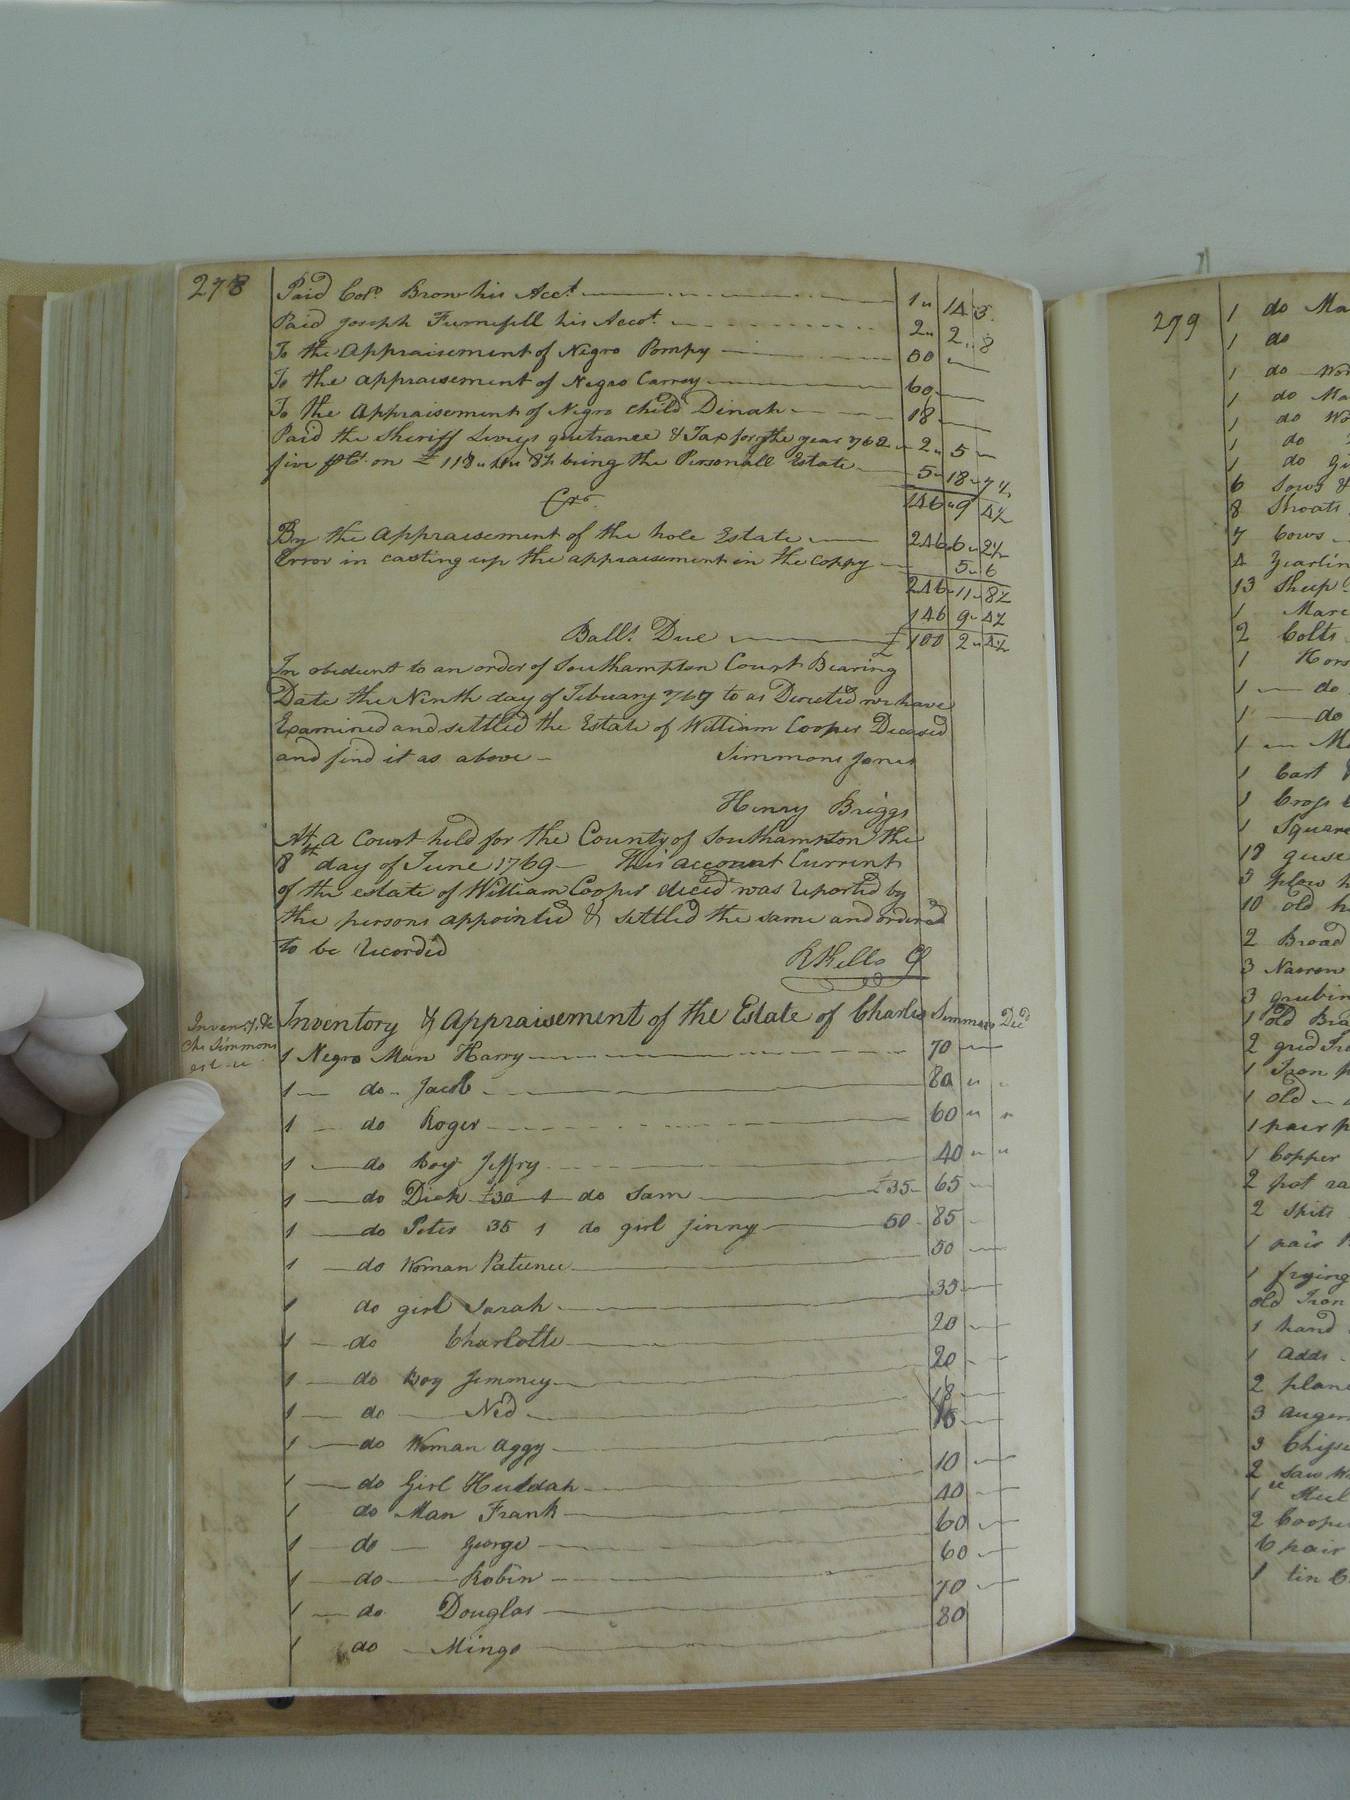 278
Paid Col.º Brow his Acct. 1 " 14 3
Paid Joseph Turnefill his Accot. 2 " 2 " 8
To the Appraisement of Negro Pompy 50 "
To the appraisement of Negro Carrey 60
To the Appraisement of Negro child Dinah 18
Paid the Sheriff Levys quitrance & Tax for the year 1762 2 " 5
five on £ 118 being the Personall Estate 5 " 18 " 7½
146 " 9 4½
Cr.
By the Appraisement of the hole Estate 246 6 " 2½
Error in casting up the appraisement in the coppy 5 " 6
246 " 11 " 8½
146 9 " 4½
Ball.ª Due £ 100 2 " 4½
In obedient to an order of Southampton Court Bearing
Date the Ninth day of Febuary to as Directed we have
Examined and settled the Estate of William Cooper Deceased
and find it as above
Simmons Jones
Henry Briggs
At a Court held for the County of Southampton the
8th day of June 1769 This account Current
of the estate of William Cooper deced was reported by
the persons appointed & settled the same and ordered
to be recorded
R Kello
Inven.y &c
Cha Simmons
est
Inventory & Appraisement of the Estate of Charles Simmons Dec'd
1 Negro Man Harry 70
1 do Jacob 80 "
1 do Roger 60 " "
1 do Boy Jeffry 40 " "
1 do Dick £30 1 do Sam £35 65
1 do Peter 35 1 do girl Jinny 50 85
1 do Woman Patience 50
1 do girl Sarah 35
1 do Charlotte 20
1 do Boy Jemmey 20
1 do Ned 18
1 do Woman Aggy 15
1 do Girl Huldah 10
1 do Man Frank 40
1 do George 60
1 do Robin 60
1 do Douglas 70
1 do Mingo 80
279
1 do Ma
1 do
1 do Wo
1 do Ma
1 do Wo
1 do
1 do Gi
6 Sows &
8 Shoats
7 Cows
4 Yearlin
13 Sheep
1 Mare
2 Colts
1 Hors
1 do
1 do
1 M
1 Cart &
1 Cross C
1 Square
18 geese
3 plow h
10 old h
2 Broad
3 Narrow
3 grubin
1 old Bra
2 grid Iro
1 Iron p
1 old
1 pair p
1 Copper
2 pot ra
2 Spits
1 pair
1 frying
old Iron
1 hand
1 Adds
2 plane
3 augers
3 Chisse
2 Saw
1
2 Cooper
6 pair
1 tin C